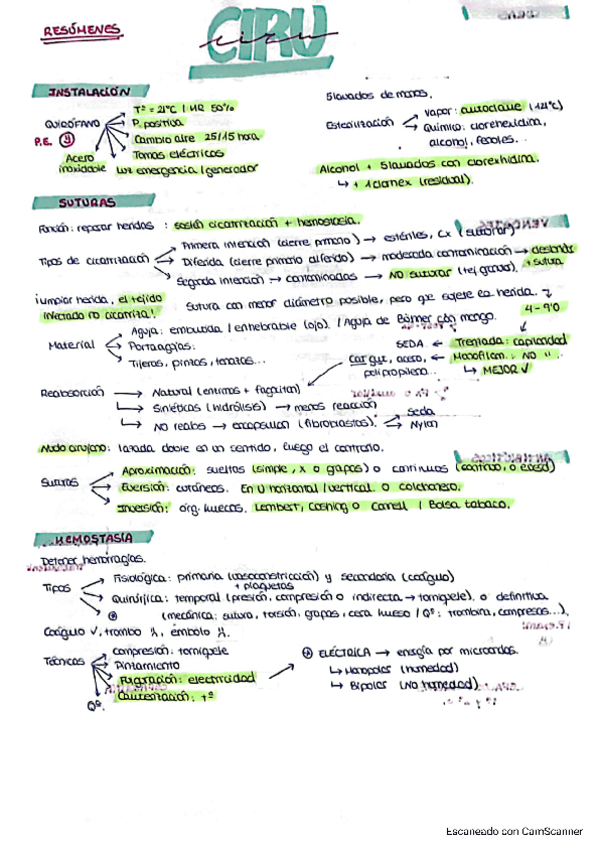 RESÚMENES
CIRU
ciru
INSTALACIÓN
QUIRÓFANO → Tª = 21ºC | HR 50%
P. positiva
P.E.
Cambio aire 25/15 hora.
Tomas eléctricas
Acero inoxidable
Luz emergencia / generador
5 lavados de manos.
Esterilización → Vapor: autoclave (121ºC)
Químico: clorehixidina, alcohol, fenoles...
Alcohol + 5 lavados con clorexhidina.
↳ + 1 clonex (residual).
SUTURAS
Función: reparar heridas: sostén cicatrización + hemostasia.
Tipos de cicatrización → Primera intención (cierre primario) → estériles, Cx (suturar)
Diferida (cierre primario diferido) → moderada contaminación → desbridar + sutura
Segunda intención → contaminadas → NO suturar (tej granul).
¡Limpiar herida, el tejido infectado no cicatriza!
Sutura con menor diámetro posible, pero que sujete la herida.
4-9'0
Material → Aguja: embutida / enhebrable (ojo). / Aguja de con mango.
Portaagujas.
Tijeras, pinzas, tenazas...
SEDA ← Trenzada: capilaridad
Car gut, acero, polipropileno... ← Monofilam.: NO ".
↳ MEJOR ✓
Reabsorción → Natural (enzimas + fagocitan)
↳ Sintéticas (hidrólisis) → menos reacción
↳ NO reabs → encapsulan (fibroblastos). → Seda
Nylon
Nudo cirujano: lazada doble en un sentido, luego el contrario.
Suturas → Aproximación: sueltas (simple, x o grapas) o continuas (continuo, o )
Eversión: cutáneas. En U horizontal / vertical o colchonero.
Inversión: org. huecos. Lembert, Cushing o Conell / Bolsa tabaco.
HEMOSTASIA
Detener hemorragias.
Tipos → Fisiológica: primaria (vasoconstricción + plaquetas) y secundaria (coágulo)
Quirúrjica: temporal (presión, compresión o indirecta → torniquete). o definitiva
(mecánica: sutura, torsión, grapas, cera hueso / Qª: trombina, compresas...).
Coágulo ✓, trombo , émbolo .
Técnicas → compresión: torniquete
Pinzamiento
Fulguración: electricidad
Cauterización: Tª
Qª.
ELÉCTRICA → energía por microondas.
↳ Monopolar (humedad)
↳ Bipolar (No humedad)
Escaneado con CamScanner